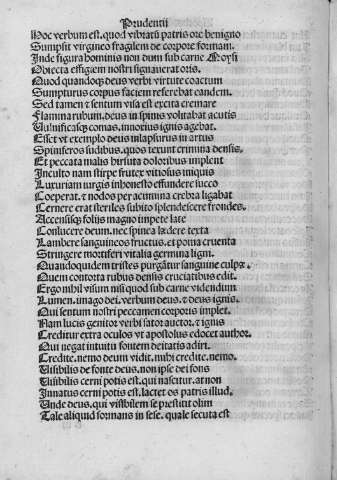 Prudentii
Hoc verbum est, quod vibratū patris ore benigno
Sumpsit virgineo fragilem de corpore formam.
Inde figura hominis non dum sub carne Moysi
Obiecta effigiem nostri signauerat oris.
Quod quandoq; deus verbi virtute coactum
Sumpturus corpus faciem referebat eandem.
Sed tamen ⁊ sentum visa est excita cremare
Flamma rubum. deus in spinis volitabat acutis
Vulnificasq; comas. innoxius ignis agebat.
Esset vt exemplo deus inlapsurus in artus
Spiniferos sudibus. quos texunt crimina densis.
Et peccata malis hirsuta doloribus implent
Inculto nam stirpe frutex vitiosus iniquis
Luxuriam virgis inhonesto effundere succo
Coeperat. ⁊ nodos per acumina crebra ligabat
Cernere erat steriles subito splendescere frondes.
Accensisq; folijs magno impete late
Conlucere deum. nec spinea lædere texta
Lambere sanguineos fructus. et poma cruenta
Stringere mortiferi vitalia germina ligni.
Quandoquidem tristes purgātur sanguine culpæ.
Quem contorta rubus densis cruciatibus edit.
Ergo nihil visum nisi quod sub carne videndum
Lumen. imago dei. verbum deus. ⁊ deus ignis.
Qui sentum nostri peccamen corporis implet.
Nam lucis genitor verbi sator auctor. ⁊ ignis
Creditur extra oculos vt apostolus edocet author.
Qui negat intuitu fontem deitatis adiri.
Credite. nemo deum vidit. mihi credite. nemo.
Visibilis de fonte deus. non ipse dei fons
Visibilis cerni potis est. qui nascitur. at non
Innatus cerni potis est. latet os patris illud.
Unde deus. qui visibilem se prestitit olim
Tale aliquid formans in sese. quale secuta est